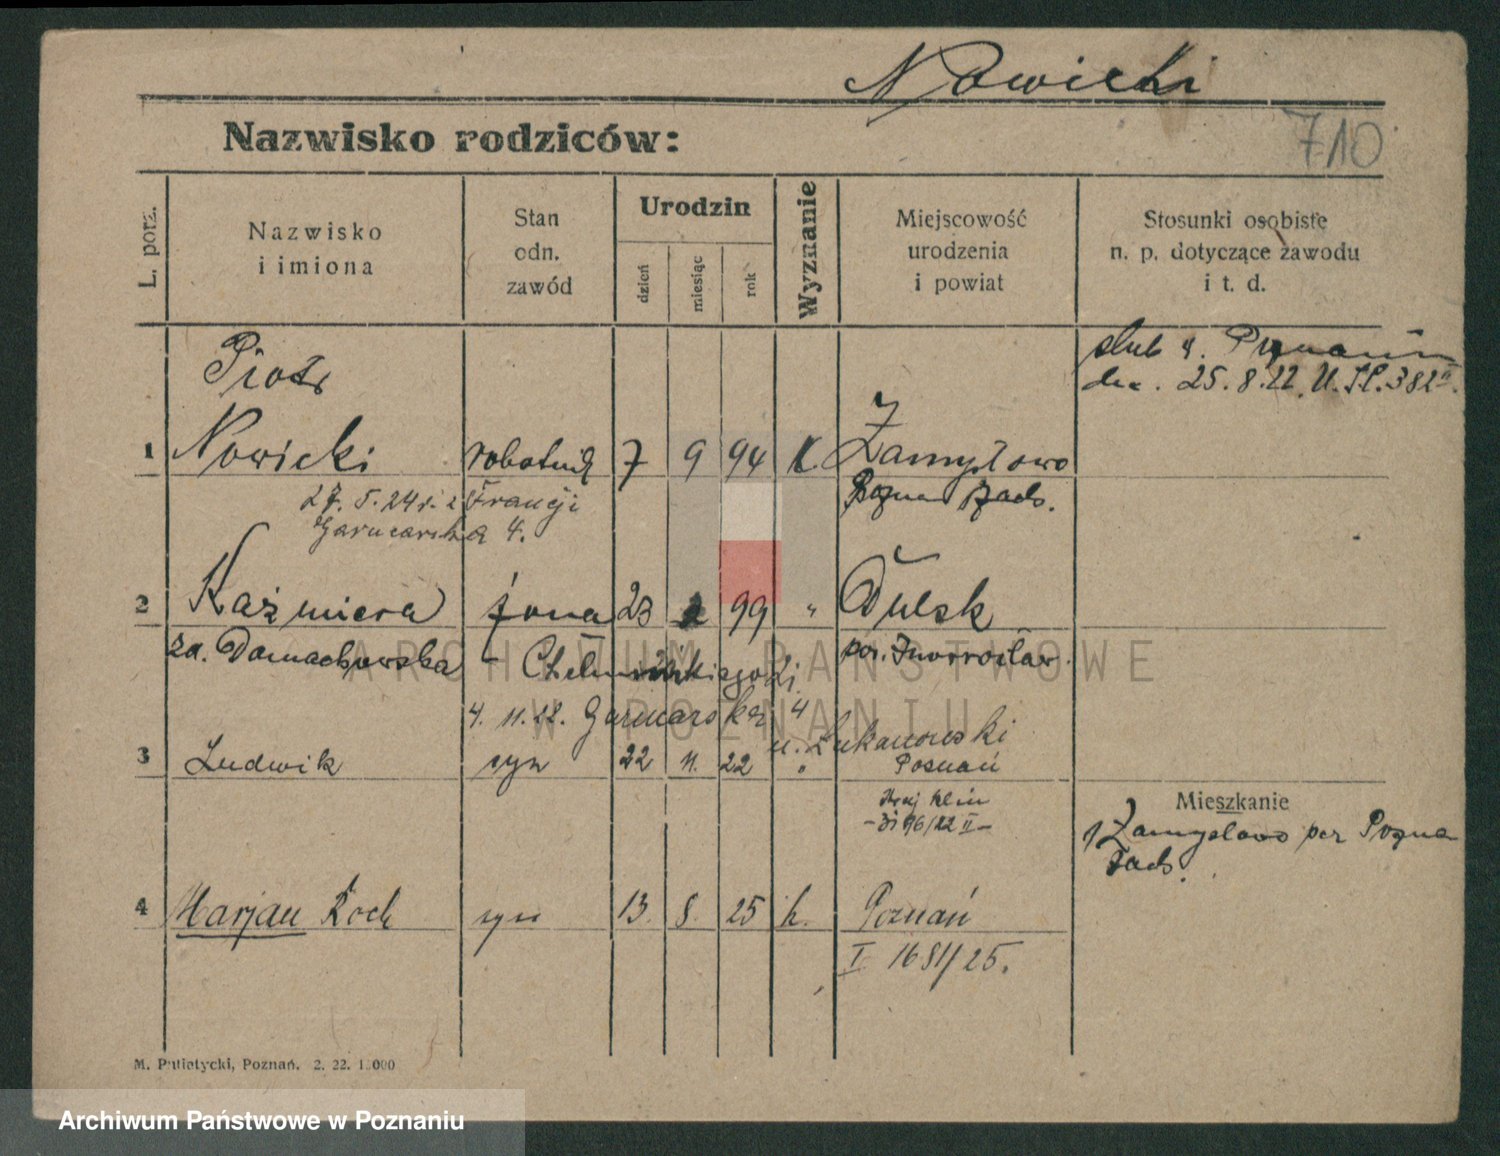 Nowicki
710
Nazwisko rodziców:
L. porz.
Nazwisko
i imiona
Stan
odn.
zawód
Urodzin
dzień
miesiąc
rok
Wyznanie
Miejscowość
urodzenia
i powiat
Stosunki osobiste
n. p. dotyczące zawodu
i t. d.
ślub Poznaniu
25.8.22. U.
Piotr
1 Nowicki robotnik 7 9 94 k Zamysłowo
27.5.24 r. z Francji
Garncarska 4.
2 Kaźmiera żona 23 2 99 " Dulsk
za. Domachowska
pow. Inowrocław.
4. 11. 22. Garncarska 4
u. Łukanowski
3 Ludwik syn 22 11. 22 " Poznań
96/22 II
Mieszkanie
Zamysłowo per
4 Marjan Roch syn 13. 8. 25 k. Poznań
I 1681/25.
M. Putiatycki, Poznań. 2. 22. 1.000
ARCHIWUM PAŃSTWOWE
W POZNANIU
Archiwum Państwowe w Poznaniu